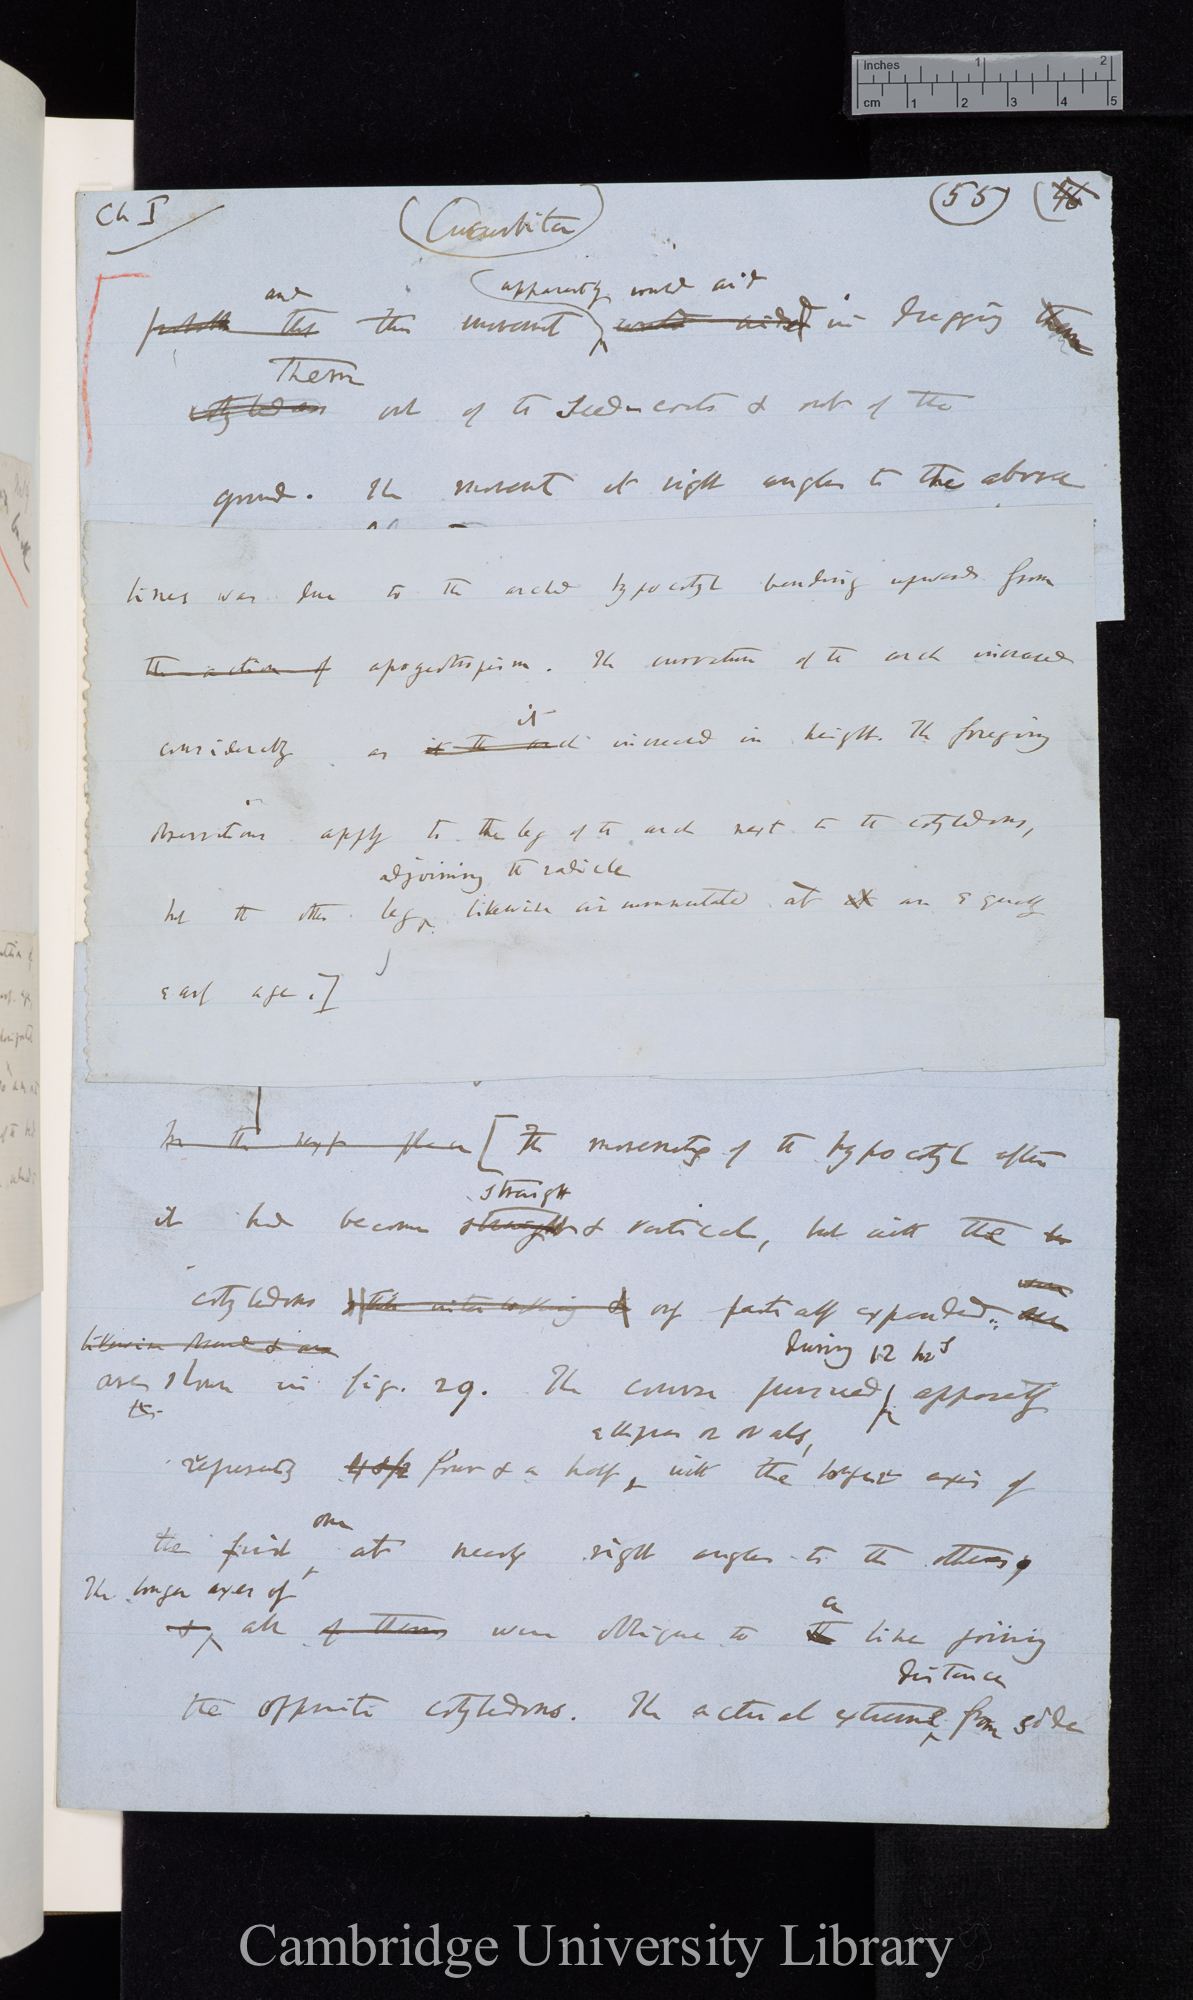 Inches 1 2
cm 1 2 3 4 5
Ch I
(Cucurbita)
(55) (46
and apparently would aid
this this movement would aided in dragging them
them
cotyledons out of the seed-coats & out of the
ground. The movement at right angles to the above
lines was due to the arched hypocotyl bending upwards from
the action of apogeotropism. The curvature of the arch increased
it
considerably as it the arch increased in height. The foregoing
observations apply to the leg of the arch next to the cotyledons,
adjoining the radicle
but the other leg likewise circumnutated at at an equally
early age.]
In the next place [The movements of the hypocotyl after
straight
it had become straight & vertical, but with the
cotyledons only partially expanded,
were
likewise observed & are
during 12 hrs
are shown in fig. 29. The course pursued apparently
ellipses or ovals,
represents 4 1/2 four & a half, with the longest axis of
one
the first at nearly right angles to the others,
The longer axes of
& all of them were oblique to the line joining
a
distance
the opposite cotyledons. The actual extreme from side
Cambridge University Library